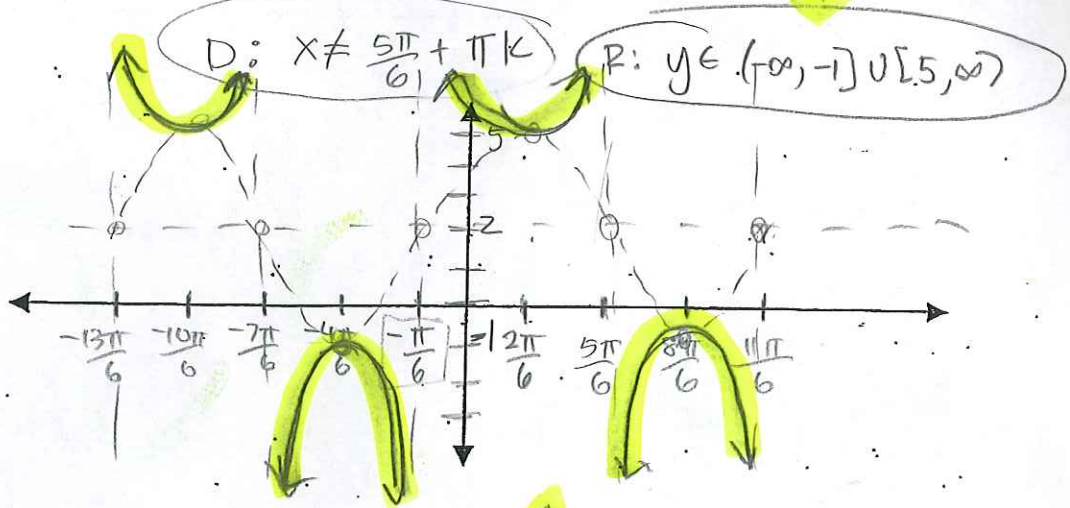 D: x ≠ 5π/6 + πk
R: y ∈ (-∞, -1] ∪ [5, ∞)
5
2
-1
-13π/6 -10π/6 -7π/6 -4π/6 -π/6 2π/6 5π/6 8π/6 11π/6